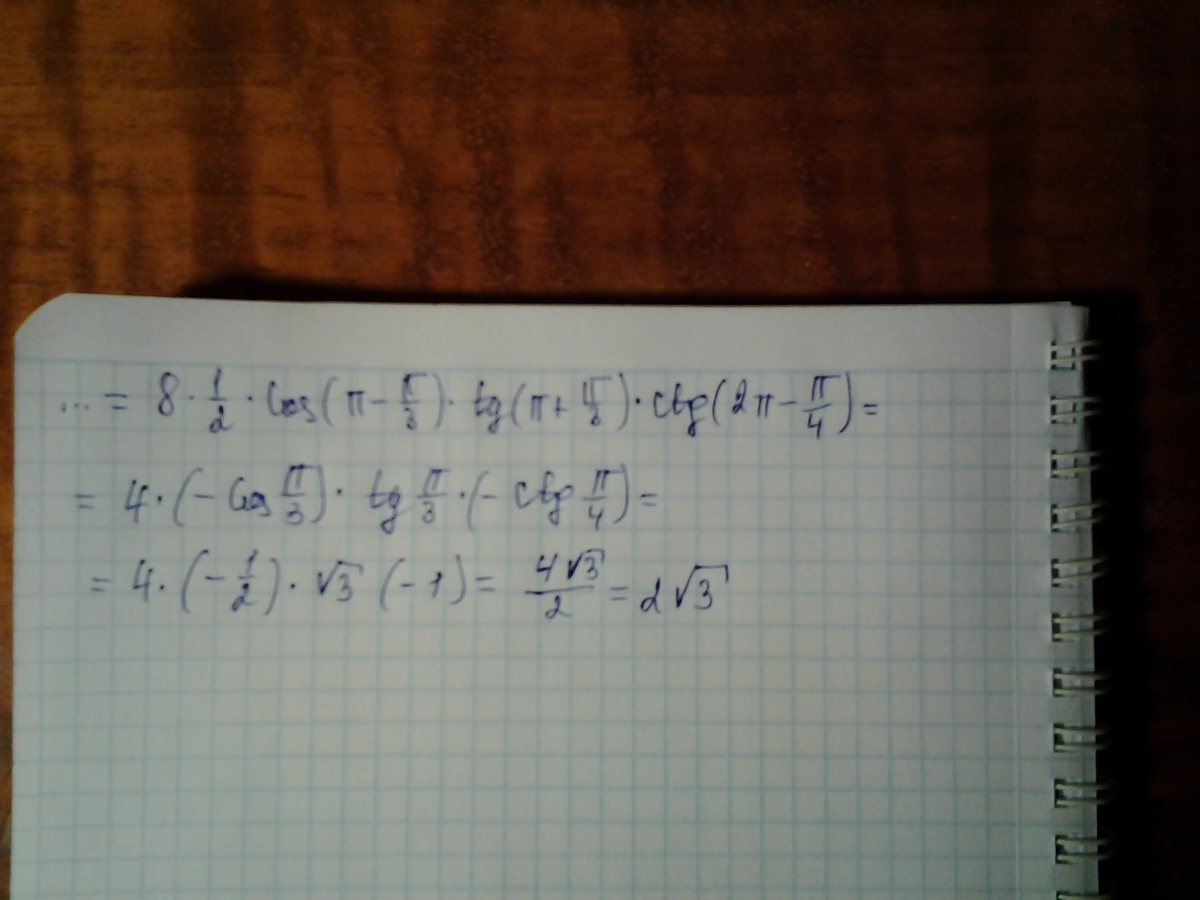 ... = 8 · 1/2 · cos(π - π/3) · tg(π + π/3) · ctg(2π - π/4) =
= 4 · (- cos π/3) · tg π/3 · (- ctg π/4) =
= 4 · (- 1/2) · √3 (-1) = 4√3/2 = 2√3